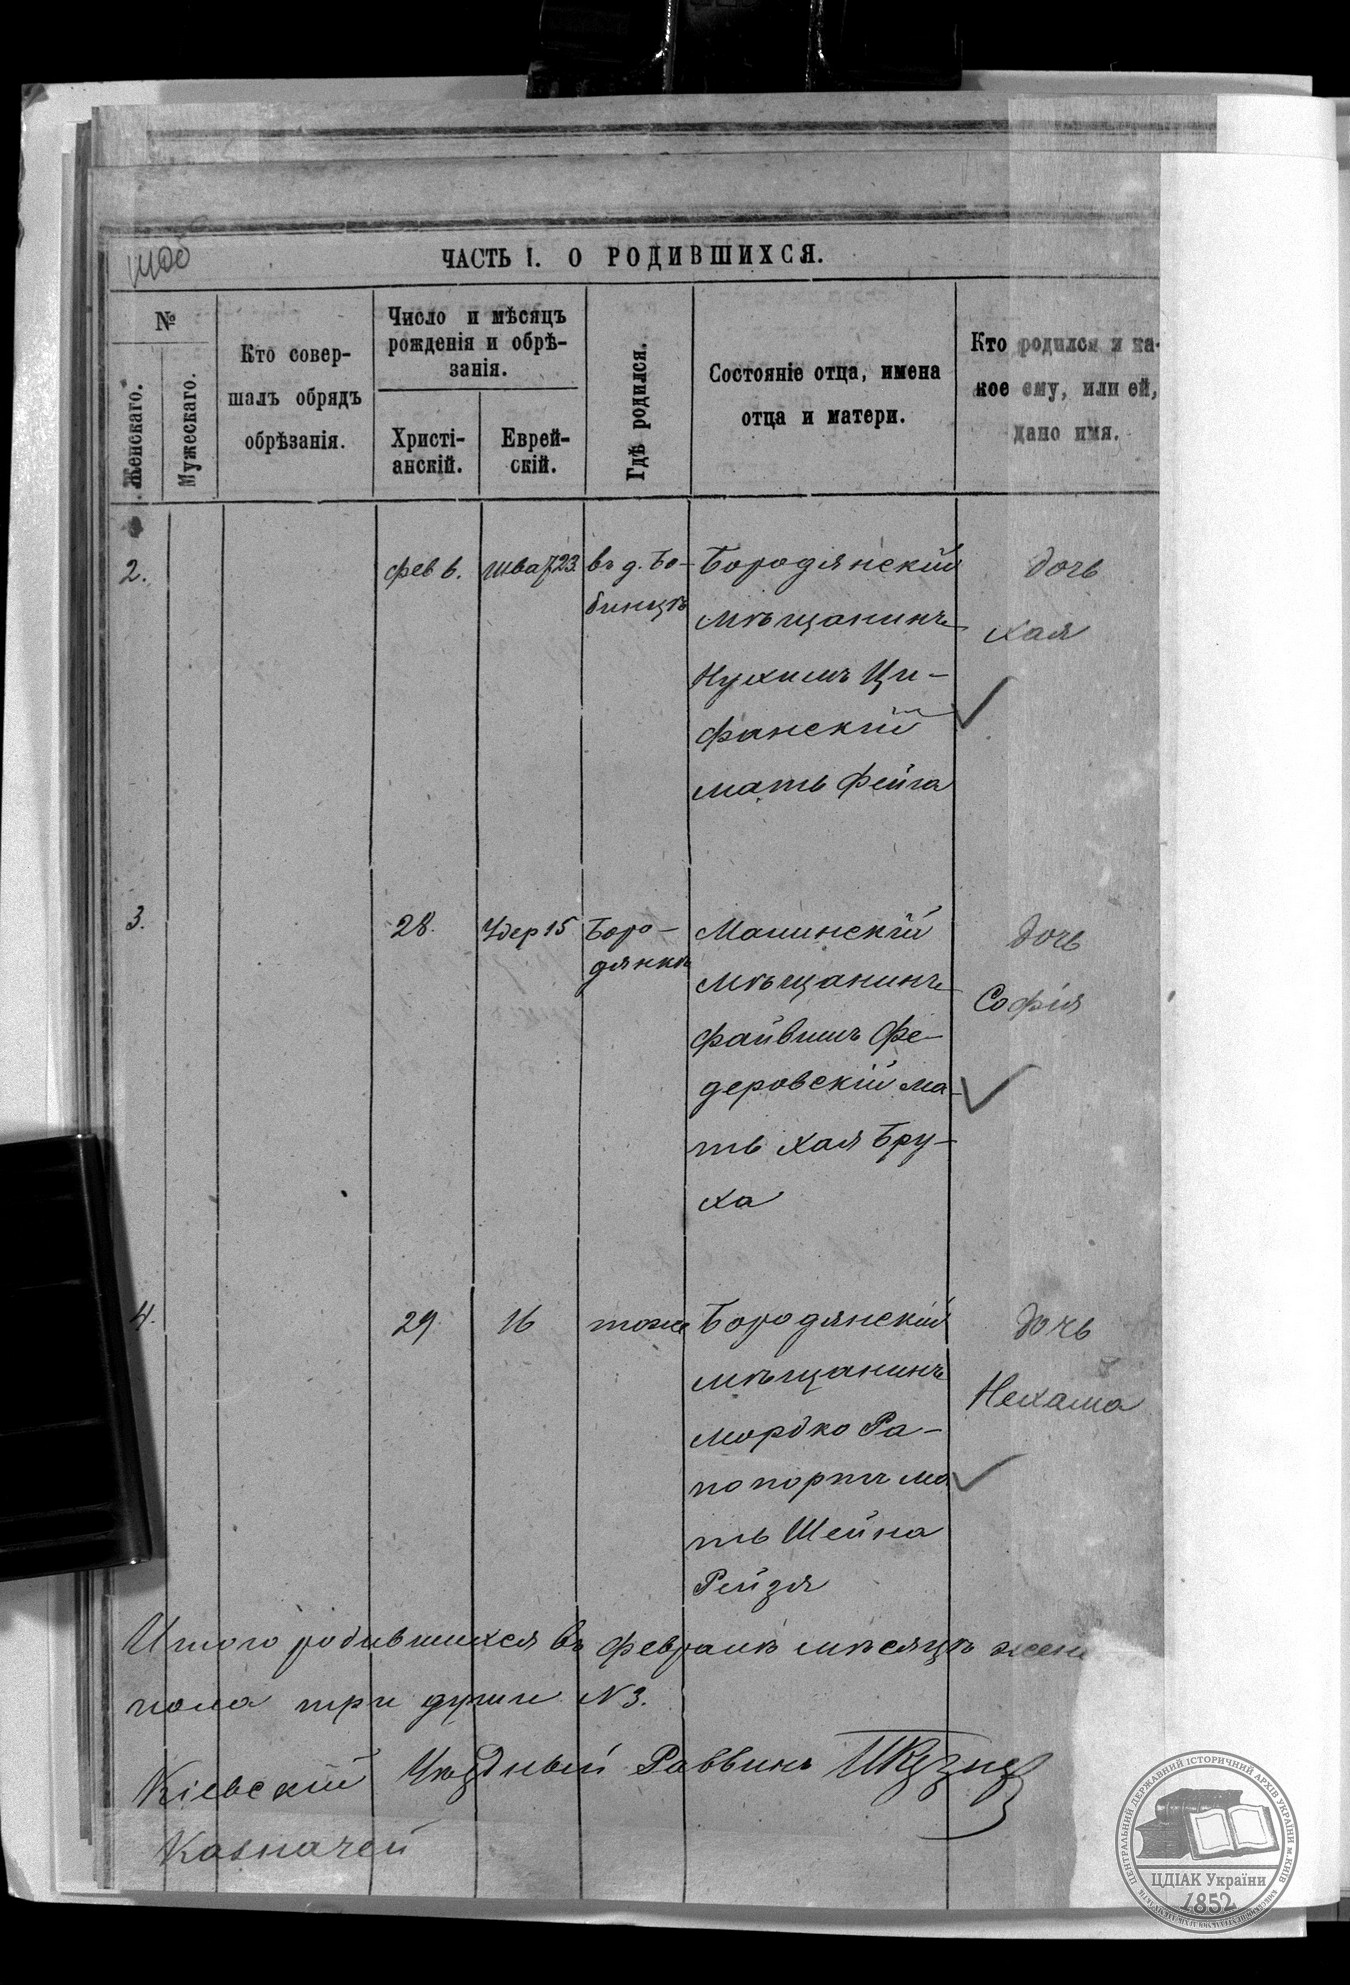 ЧАСТЬ I. О РОДИВШИХСЯ.
№
Женскаго.
Мужескаго.
Кто совер-
шалъ обрядъ
обрѣзанія.
Число и мѣсяцъ
рожденія и обрѣ-
занія.
Христі-
анскій.
Еврей-
скій.
Гдѣ родился.
Состояніе отца, имена
отца и матери.
Кто родился и ка-
кое ему, или ей,
дано имя.
2.
фев 6.
шва 23
въ д. Бо-
бинцѣ
Бородянскій
мѣщанинъ
Нухимъ Ци-
фанскій
мать Фейга
дочь
Хая
3.
28.
Адер 15
Боро-
дянкѣ
мѣщанинъ
Файвишъ Фе-
деровскій ма-
ть Хая Бру-
ха
дочь
Софія
4.
29
16
тоже
Бородянскій
мѣщанинъ
Мордко Ра-
попортъ ма
ть Шейна
Рейзя
дочь
Нехама
Итого родившихся въ февралѣ мѣсяцѣ жен
пола три души № 3.
Кіевскій Уѣздный Раввинъ
Казначей
ЦЕНТРАЛЬНИЙ ДЕРЖАВНИЙ ІСТОРИЧНИЙ АРХІВ УКРАЇНИ м. КИЇВ
ЦДІАК України
1852